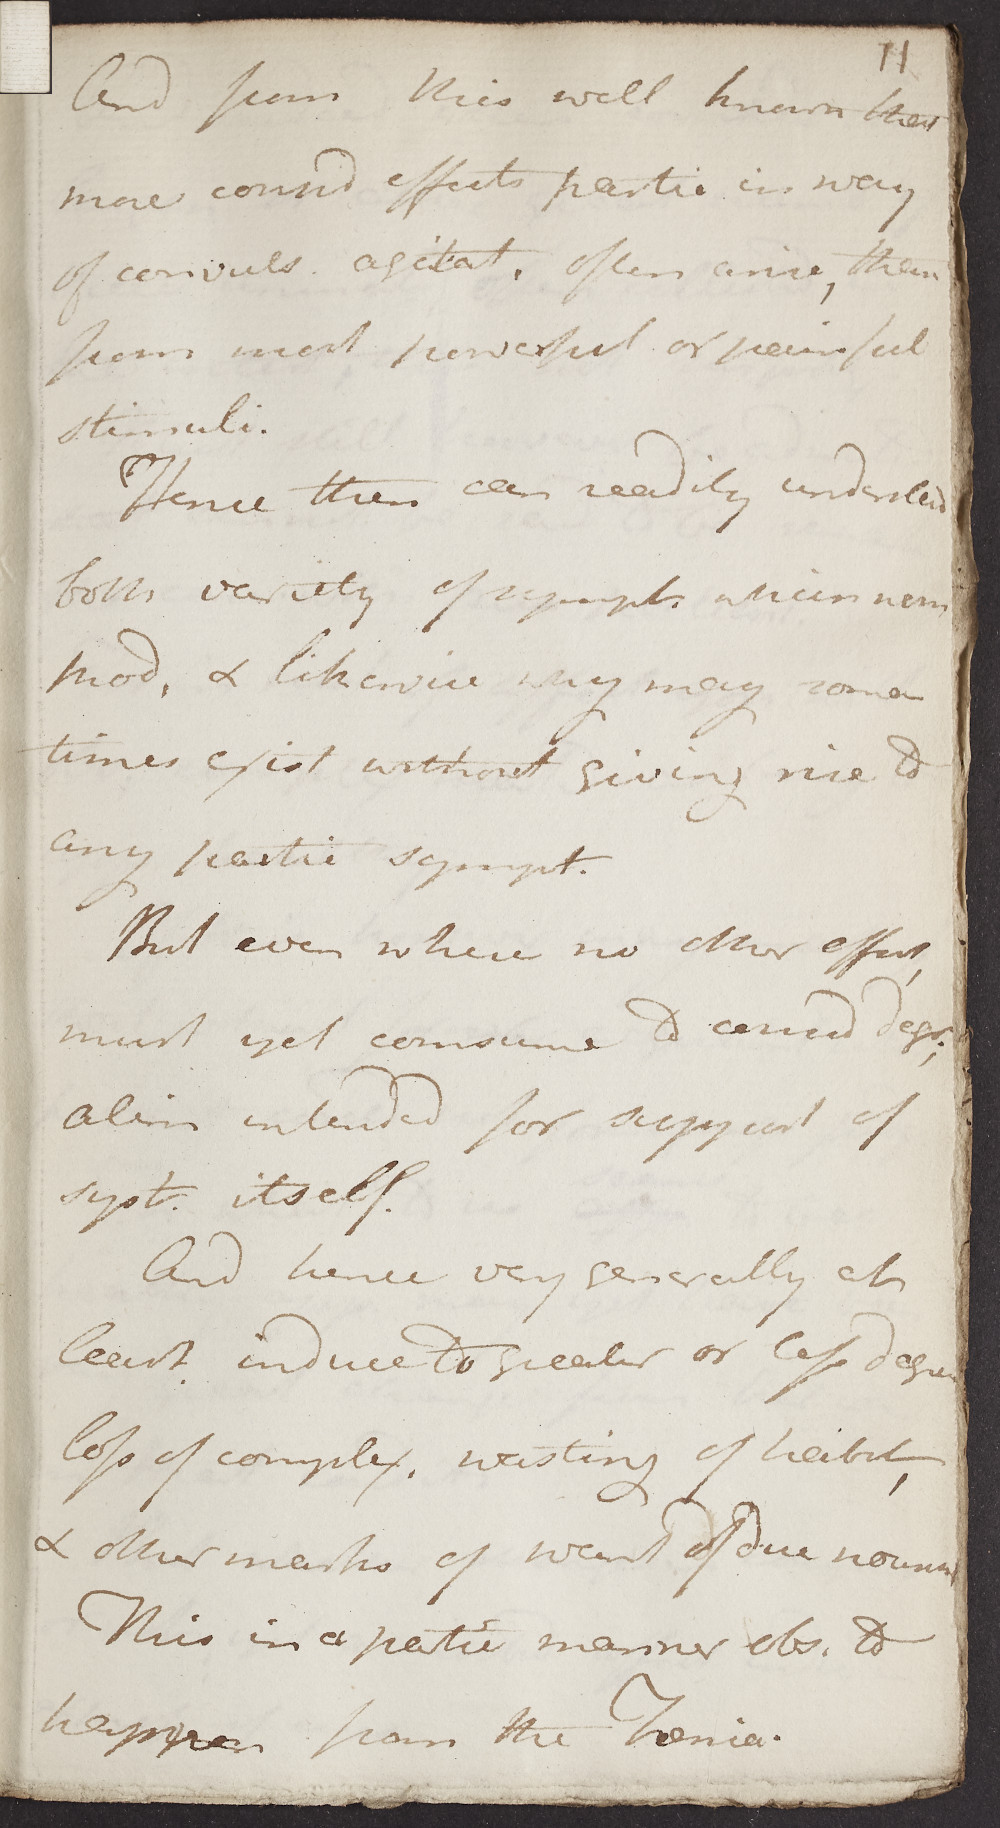 11
And from this well known that
more consid effects partic in way
of convuls. agitat, often arise, than
from most powerful or painful
stimuli.
Hence then can readily understand
both variety of sympt. which
prod, & likewise why may some
times exist without giving rise to
any partic sympt.
But even where no other effect,
must yet consume to consid degr;
alim intended for support of
syst. itself.
And hence very generally at
least induce to greater or less degree
loss of complex, wasting of habit,
& other marks of want of due
This in a partic manner obs. to
happen from the Tenia.